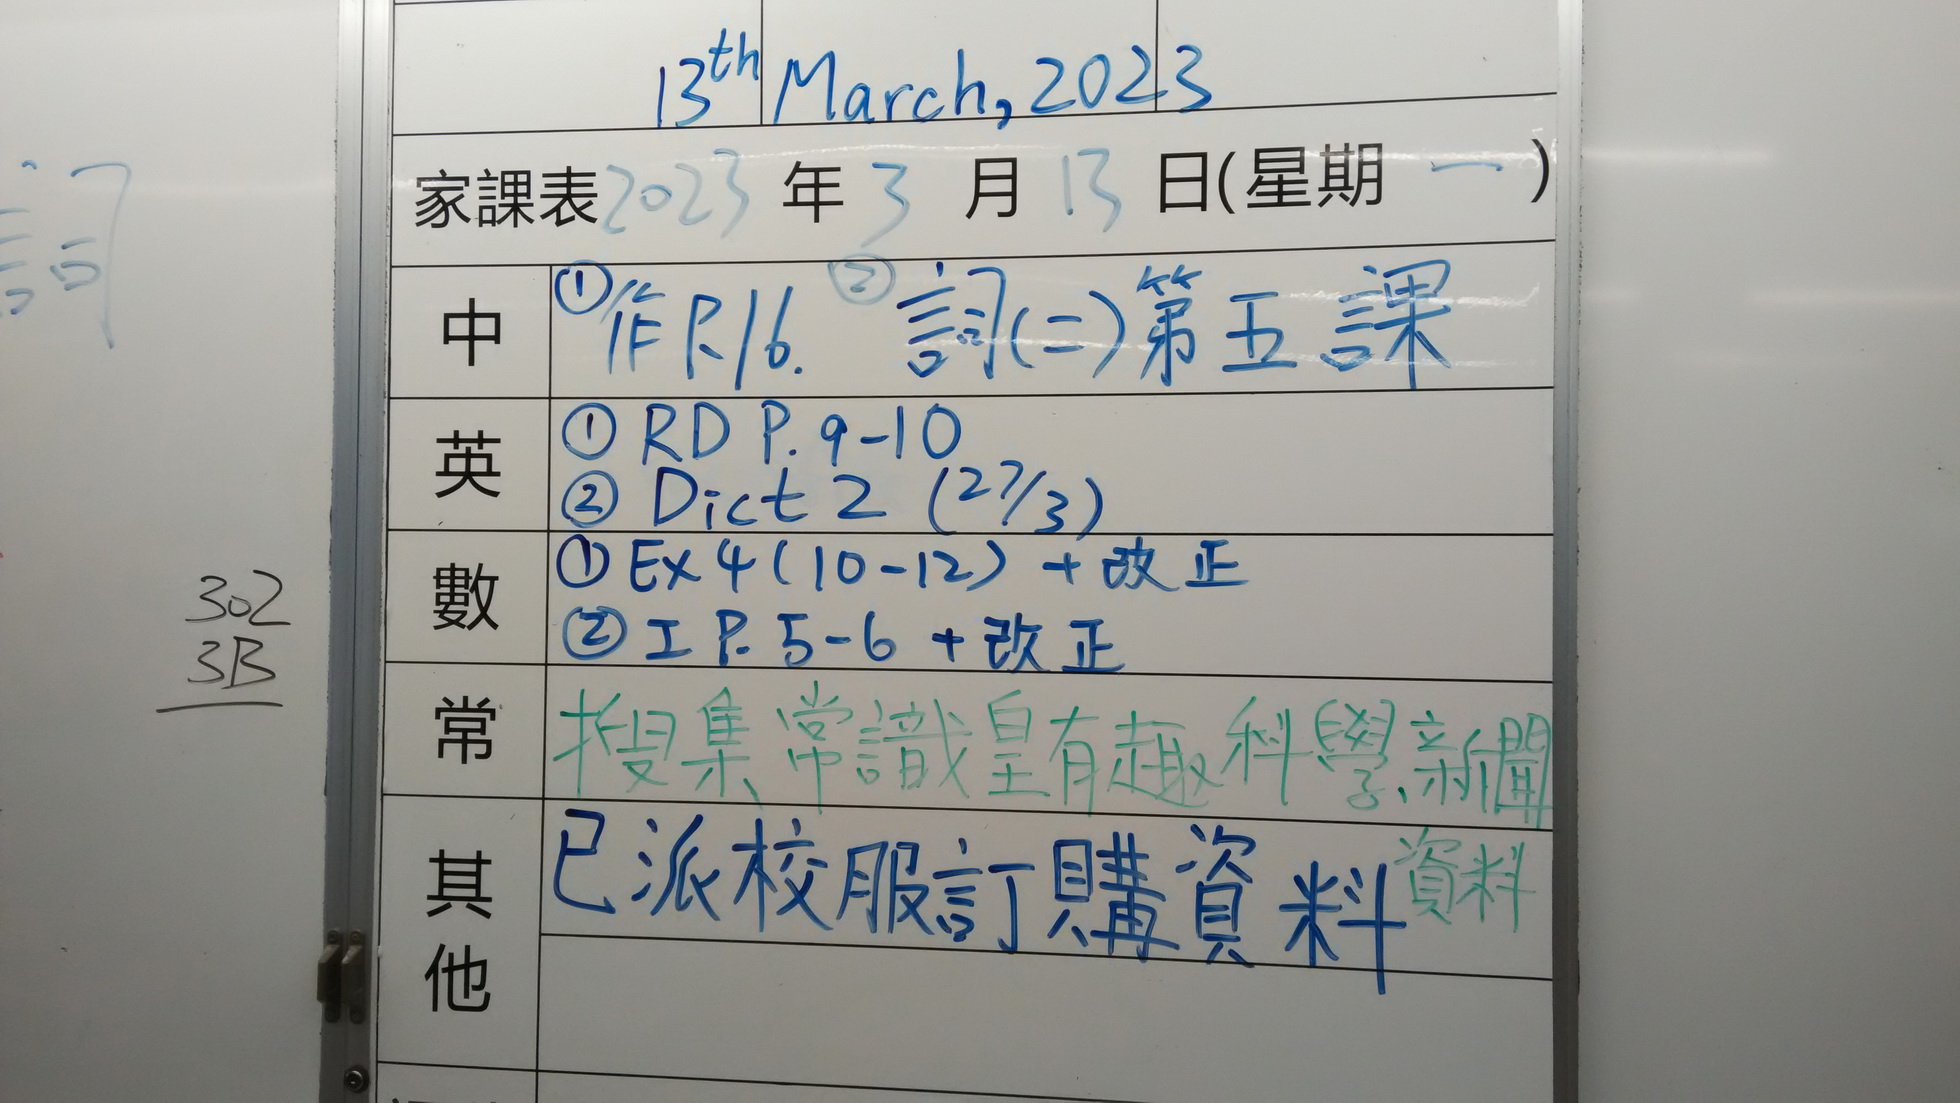 13th March, 2023
家課表 2023 年 3 月 13 日(星期 一 )
中
①作P.16. ②詞(二)第五課
英
① RD P. 9-10
② Dict 2 (27/3)
數
① Ex 4 (10-12) + 改正
② I P. 5-6 + 改正
常
搜集常識皇有趣科學新聞
資料
其他
已派校服訂購資料
詞
302
3B